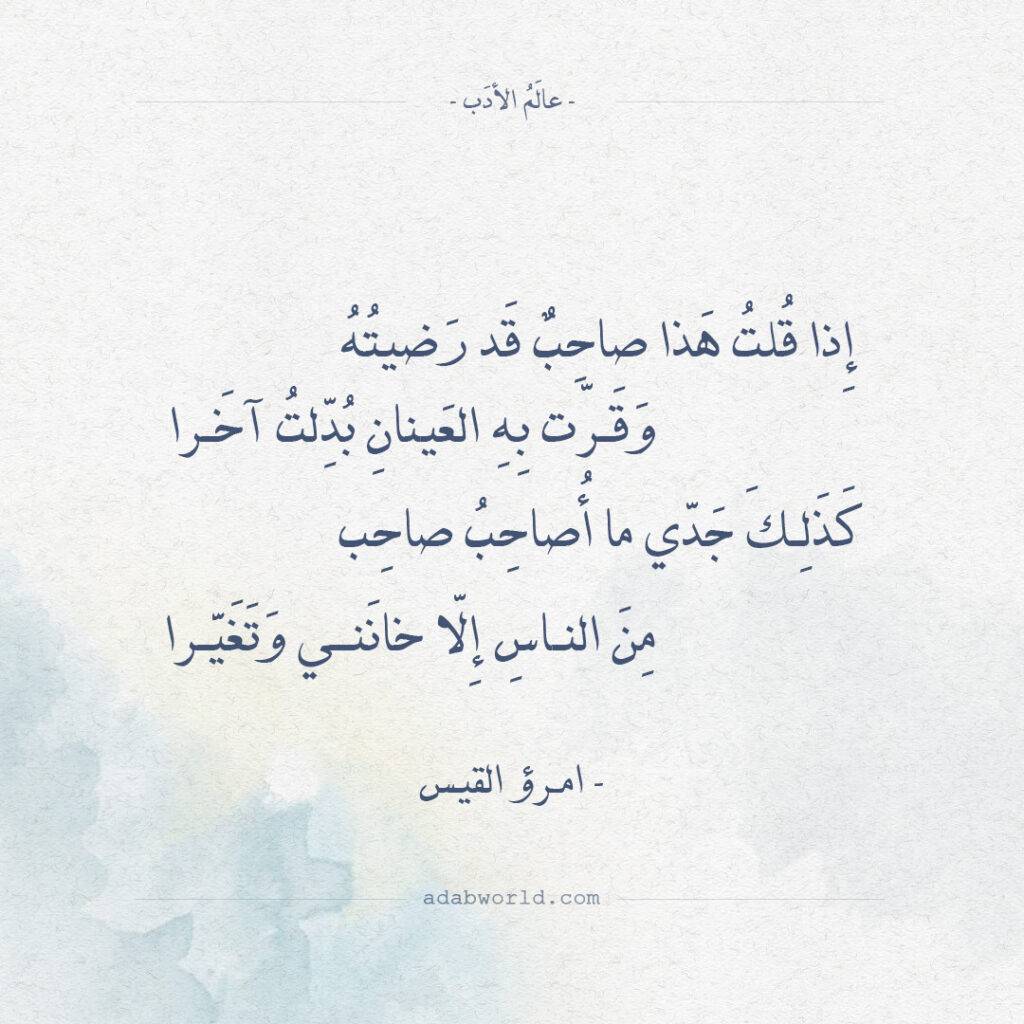 - عالَمُ الأدَب -
إِذا قُلتُ هَذا صاحِبٌ قَد رَضيتُهُ
وَقَرَّت بِهِ العَينانِ بُدِّلتُ آخَرا
كَذَلِكَ جَدّي ما أُصاحِبُ صاحِب
مِنَ الناسِ إِلّا خانَني وَتَغَيَّرا
- امرؤ القيس
adabworld.com